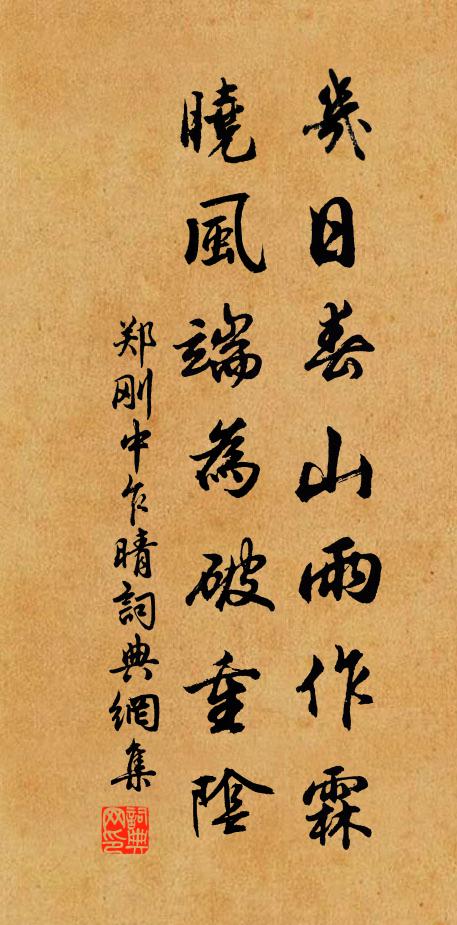 幾日春山雨作霖
曉風端為破重陰
郑刚中乍晴詞典網集
詞典网印